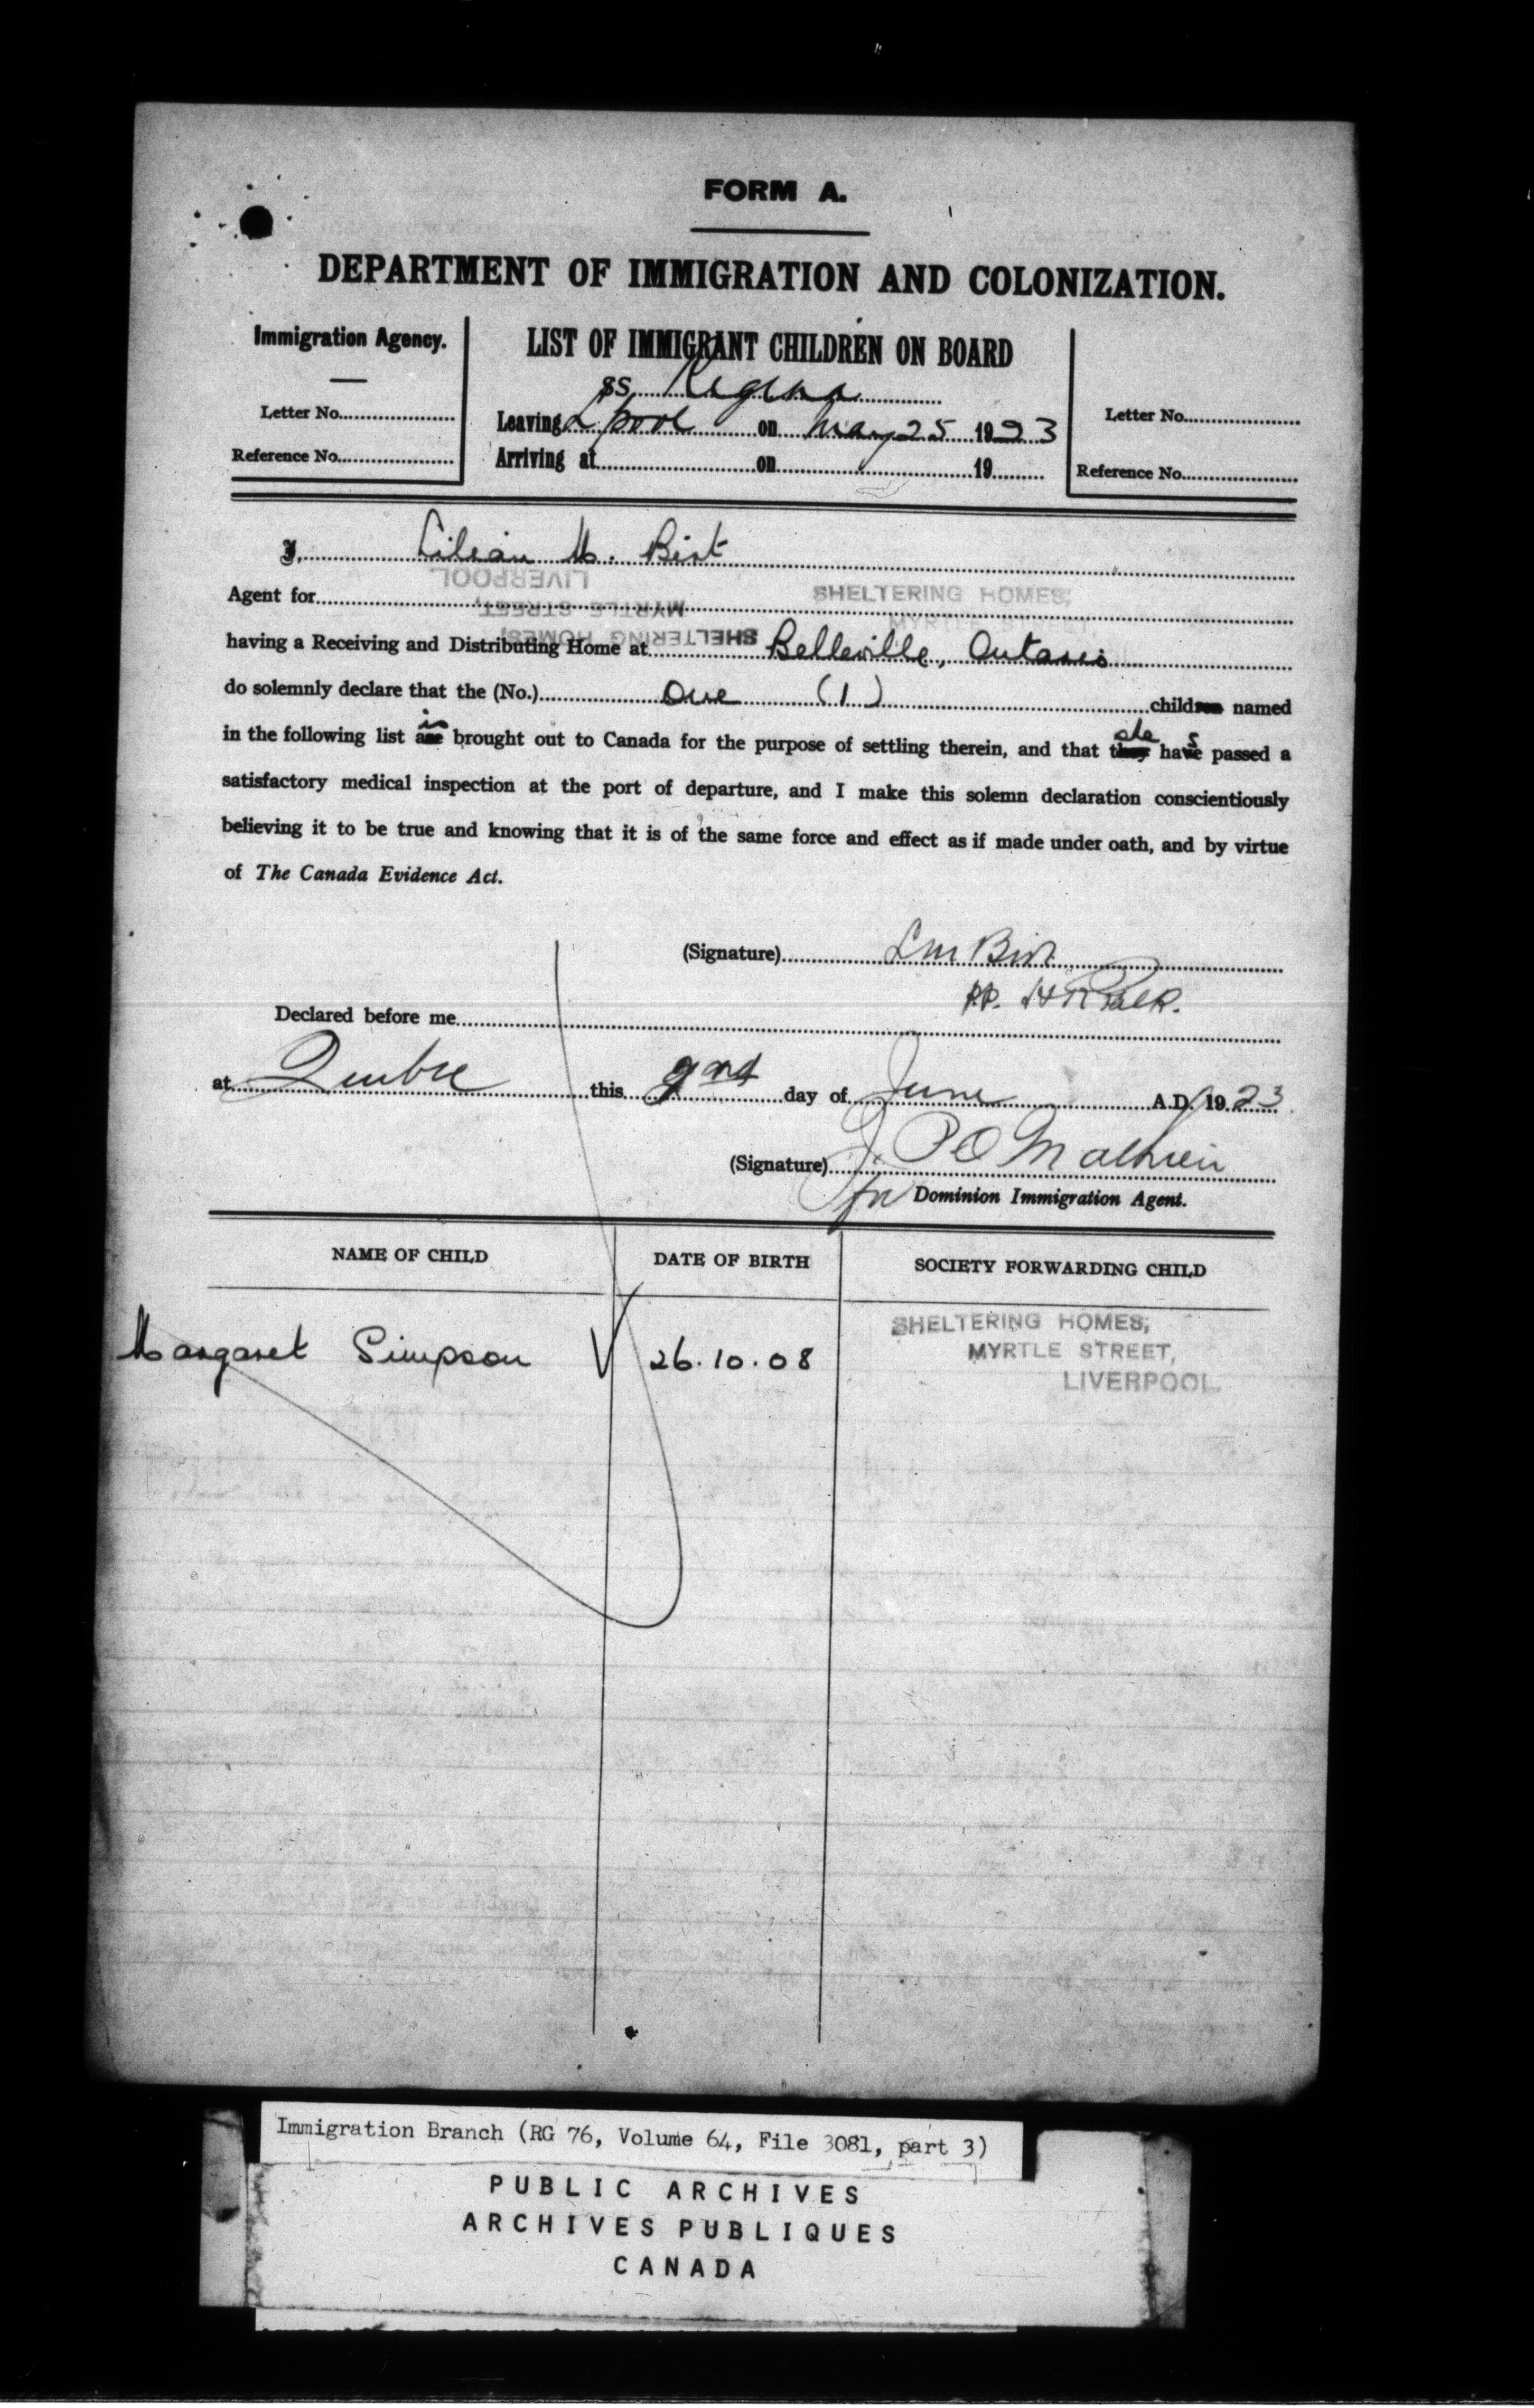 FORM A.
DEPARTMENT OF IMMIGRATION AND COLONIZATION.
Immigration Agency.
Letter No.
Reference No.
LIST OF IMMIGRANT CHILDREN ON BOARD
SS Regina
Leaving L'pool on May 25 1923
Arriving at on 19
Letter No.
Reference No.
I, Lilian M. Birt
LIVERPOOL
Agent for MYRTLE STREET, SHELTERING HOMES,
MYRTLE STREET,
having a Receiving and Distributing Home at SHELTERING HOMES, Belleville, Ontario
do solemnly declare that the (No.) One (1) children named
in the following list are is brought out to Canada for the purpose of settling therein, and that they she have s passed a
satisfactory medical inspection at the port of departure, and I make this solemn declaration conscientiously
believing it to be true and knowing that it is of the same force and effect as if made under oath, and by virtue
of The Canada Evidence Act.
(Signature) LM Birt
pp.
Declared before me
at Quebec this 2nd day of June A.D. 1923
(Signature) J. P O Mathieu
for Dominion Immigration Agent.
NAME OF CHILD DATE OF BIRTH SOCIETY FORWARDING CHILD
Margaret Simpson 26.10.08 SHELTERING HOMES,
MYRTLE STREET,
LIVERPOOL.
Immigration Branch (RG 76, Volume 64, File 3081, part 3)
PUBLIC ARCHIVES
ARCHIVES PUBLIQUES
CANADA